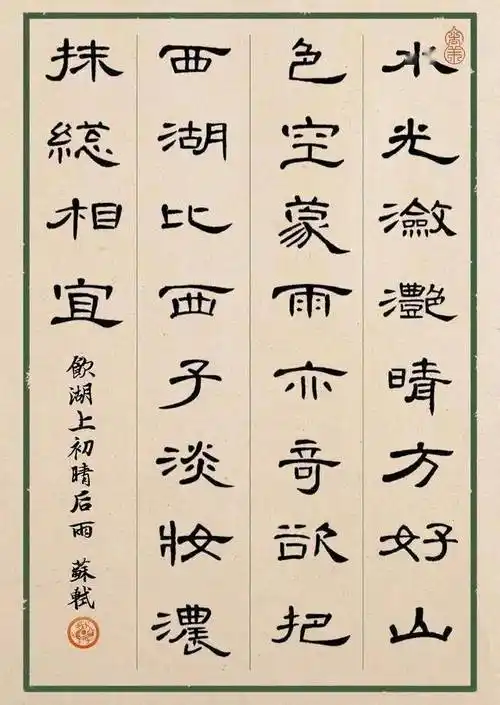 水光瀲灧晴方好山
色空蒙雨亦奇欲把
西湖比西子淡妝濃
抹總相宜
飲湖上初晴后雨 蘇軾